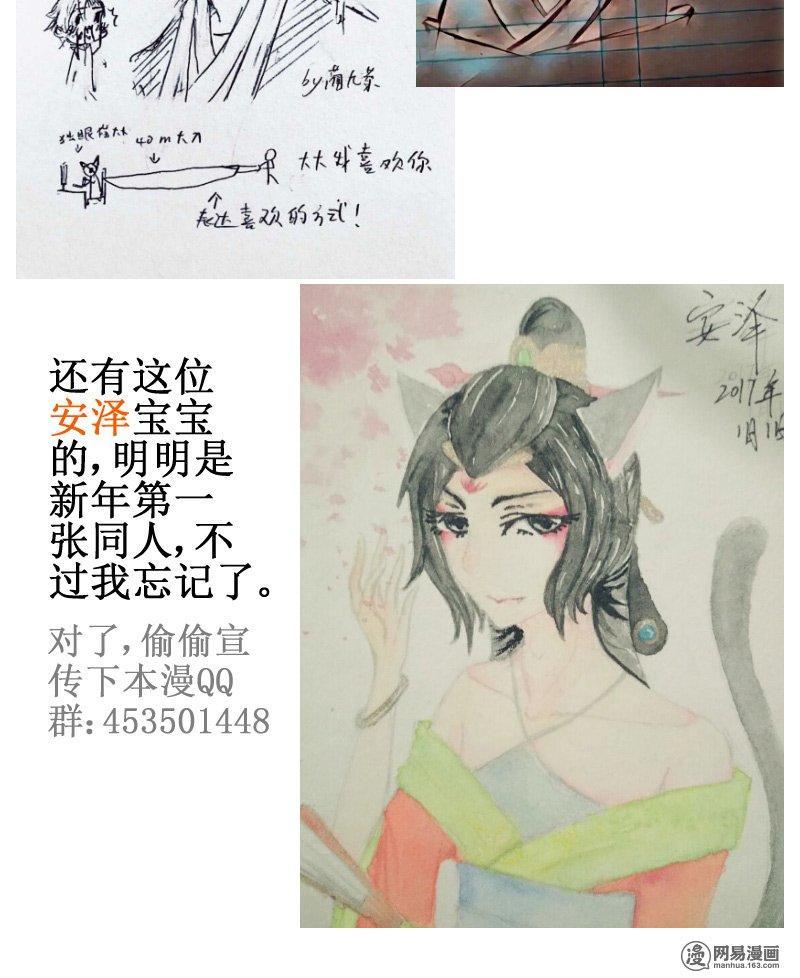 by萌九条
独眼猫大大
40m大刀
大大我喜欢你
表达喜欢的方式!
安泽
2017年
1月1日
还有这位
安泽宝宝
的,明明是
新年第一
张同人,不
过我忘记了。
对了,偷偷宣
传下本漫QQ
群:453501448
漫 网易漫画
manhua.163.com